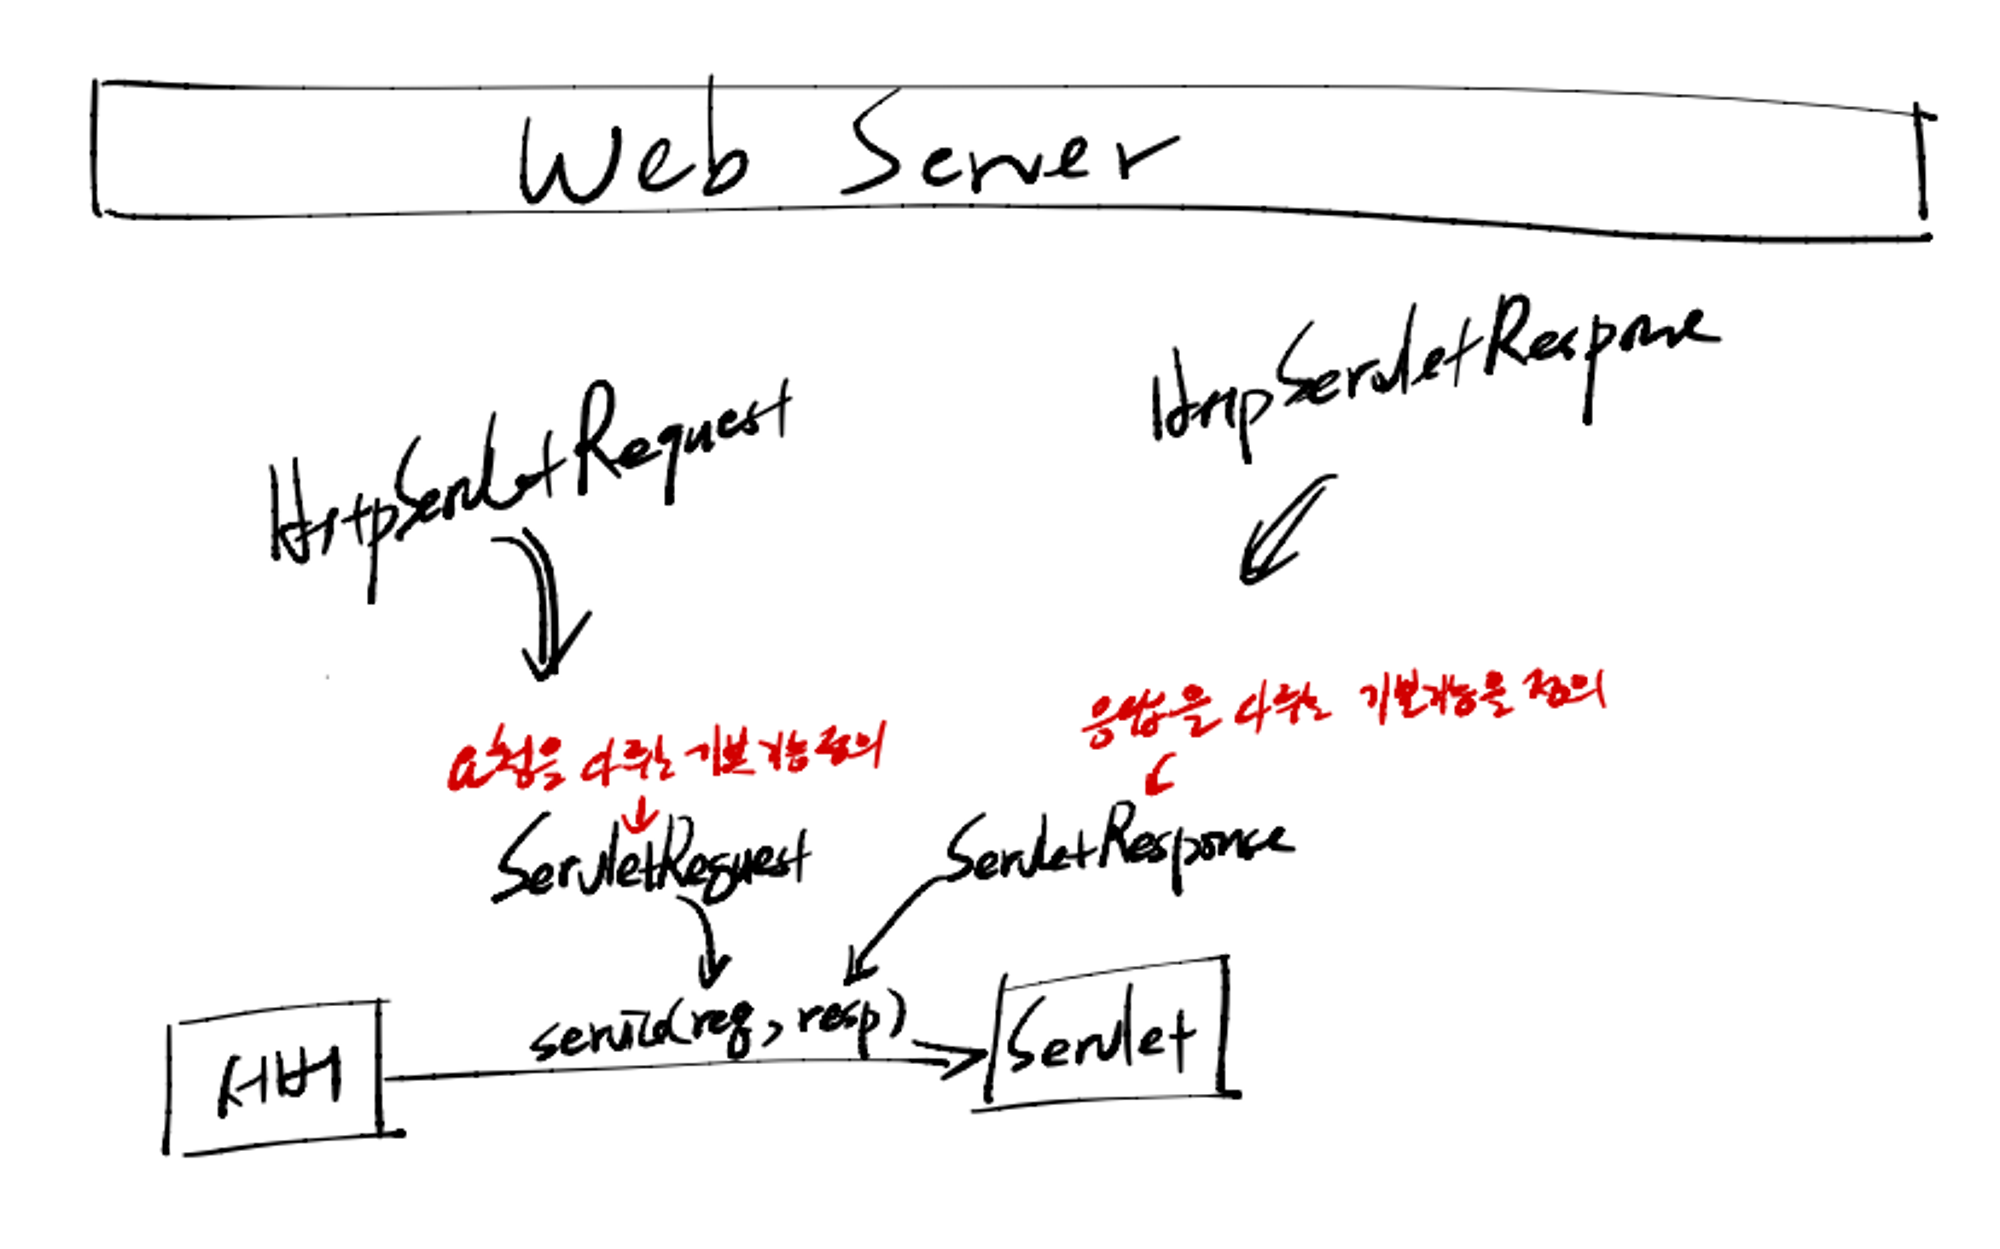 Web Server
HttpServletResponse
HttpServletRequest
응답을 다루는 기본기능을 정의
요청을 다루는 기본기능 정의
ServletRequest
ServletResponse
service(req, resp)
서버
Servlet